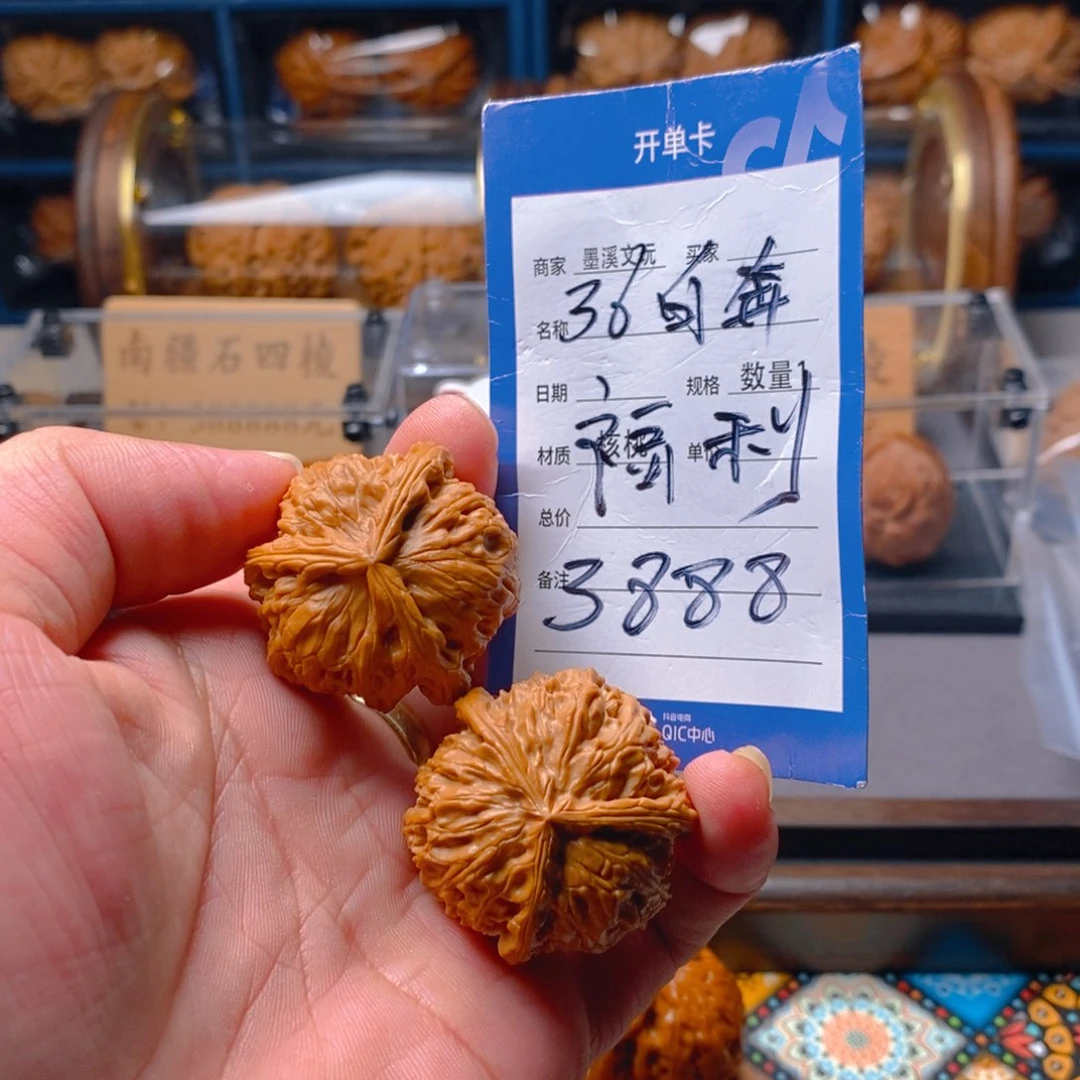 开单卡
商家 墨溪文玩 买家
36白奔
名称
日期 规格 数量1
福利
材质 核桃 单价
总价
3888
备注
抖音电商
QIC中心
南疆石四棱